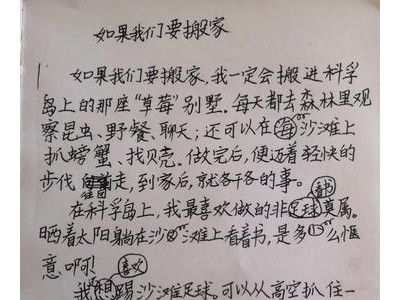 如果我们要搬家
如果我们要搬家,我一定会搬进科学
岛上的那座“草莓”别墅。每天都去森林里观
察昆虫、野餐、聊天;还可以在海沙滩上
扒螃蟹、找贝壳。做完后,便迈着轻快的
步伐走,到家后,京就各干各的事。
看书
在科学岛上,我最喜欢做的非足球莫属。
晒着太阳躺在沙滩上看着书,是多么惬
意啊!
喜欢
我想踢沙滩足球。可以从高空抓住一